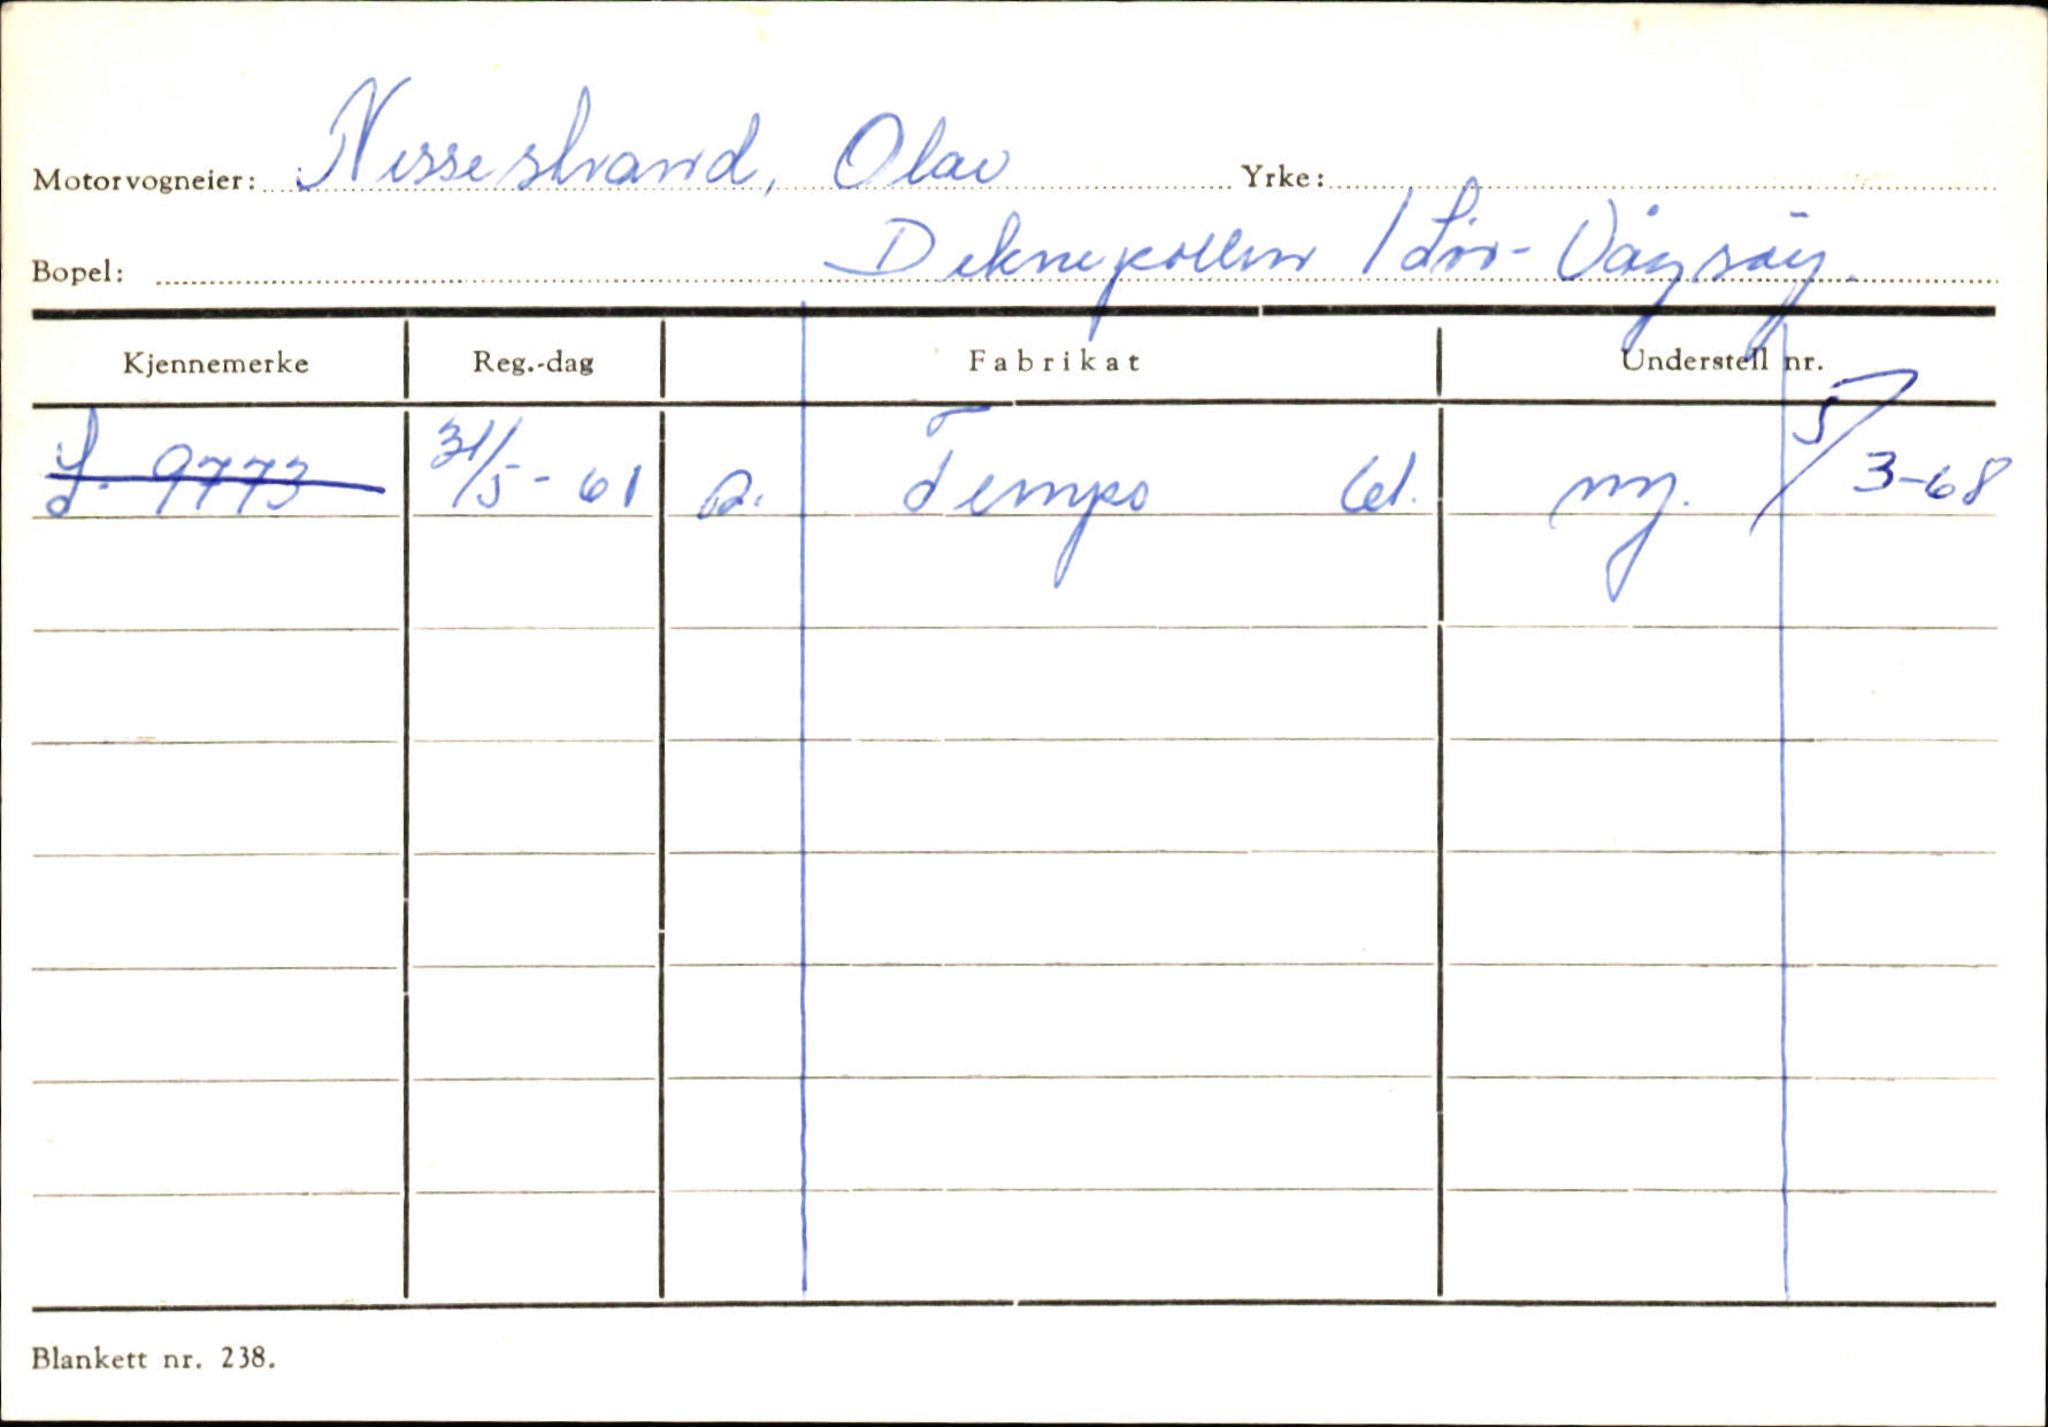 Motorvogneier: Nessestrand, Olav Yrke:
Bopel: Deknepollen / Sør-Vågsøy.
Kjennemerke Reg.-dag Fabrikat Understell nr.
S. 9773 31/5-61 a. Tempo 61. ny. 5/3-68
Blankett nr. 238.